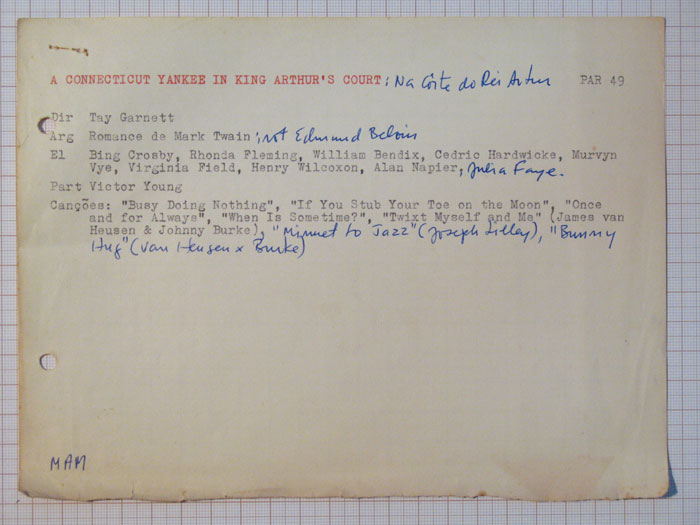 A CONNECTICUT YANKEE IN KING ARTHUR'S COURT; Na Côrte do Rei Artur PAR 49
Dir Tay Garnett
Arg Romance de Mark Twain; rot Edmund Beloin
El Bing Crosby, Rhonda Fleming, William Bendix, Cedric Hardwicke, Murvyn
Vye, Virginia Field, Henry Wilcoxon, Alan Napier; Julia Faye.
Part Victor Young
Canções: "Busy Doing Nothing", "If You Stub Your Toe on the Moon", "Once
and for Always", "When Is Sometime?", "Twixt Myself and Me" (James van
Heusen & Johnny Burke), "Minuet to Jazz" (Joseph Lilley), "Bunny
Hug" (Van Heusen x Burke)
MAM